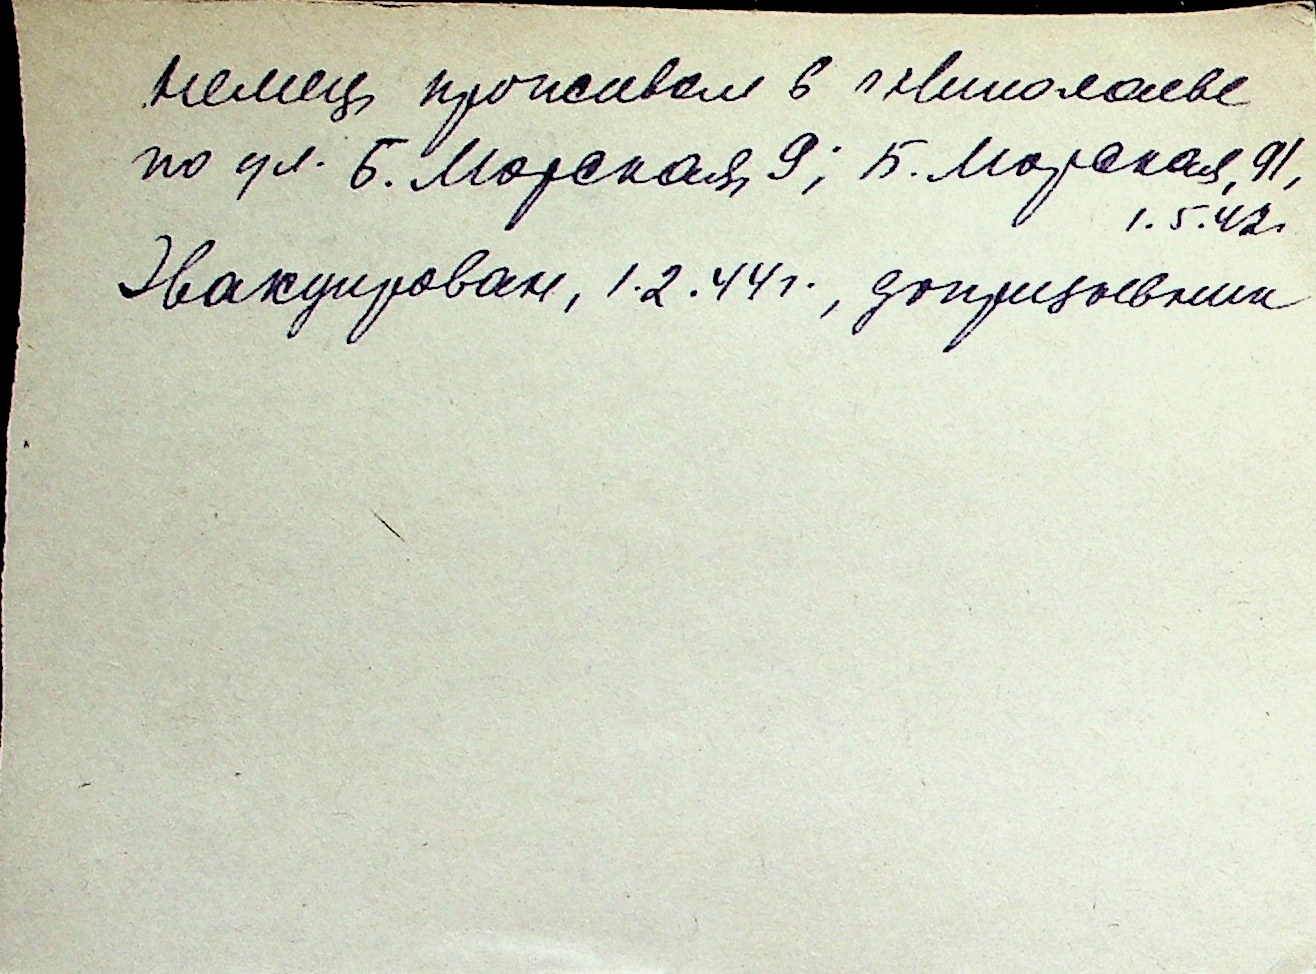 немец проживал в г Николаеве
по ул. Б. Морская, 9; Б. Морская, 91,
1.5.42г
Эвакуирован, 1.2.44г., допризывник